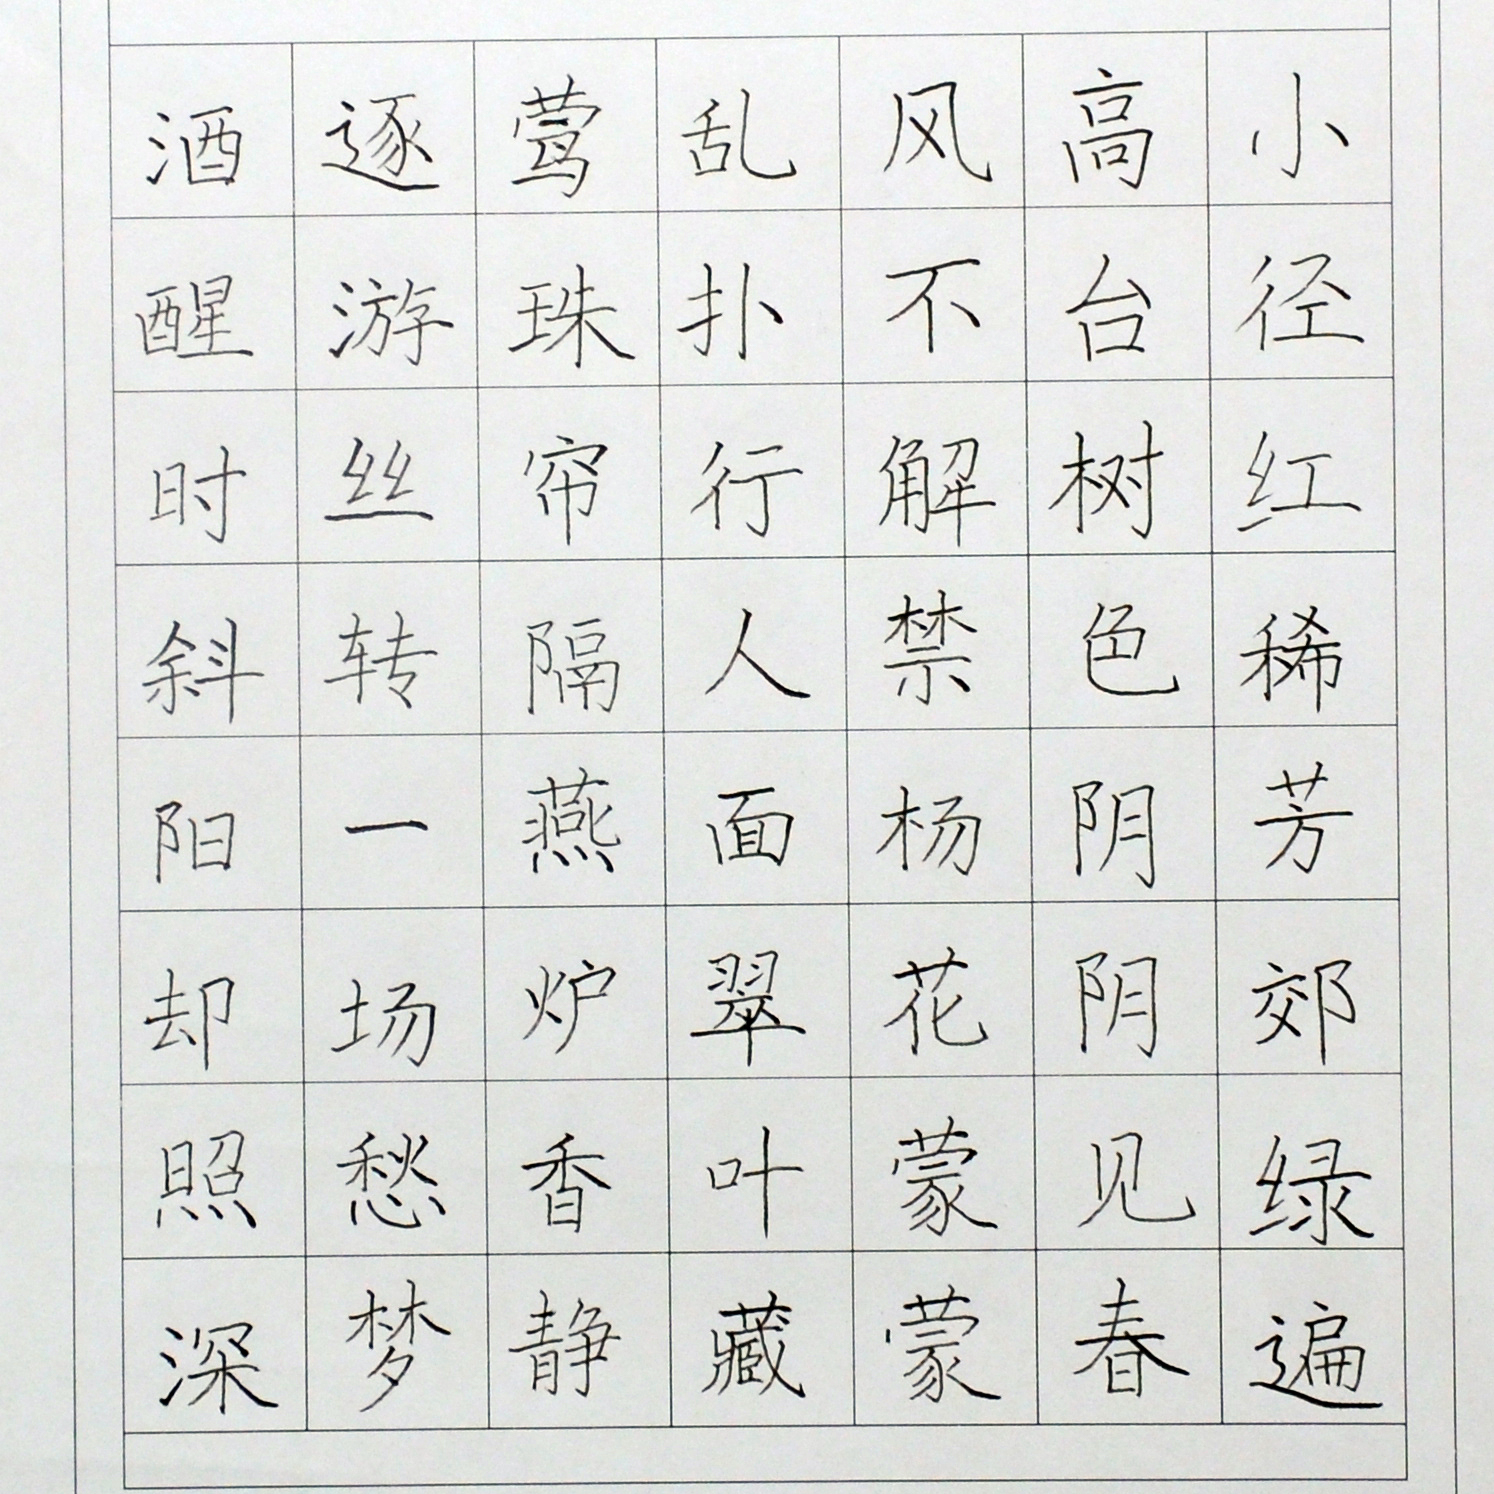 小径红稀芳郊绿遍
高台树色阴阴见春
风不解禁杨花蒙蒙
乱扑行人面翠叶藏
莺珠帘隔燕炉香静
逐游丝转一场愁梦
酒醒时斜阳却照深